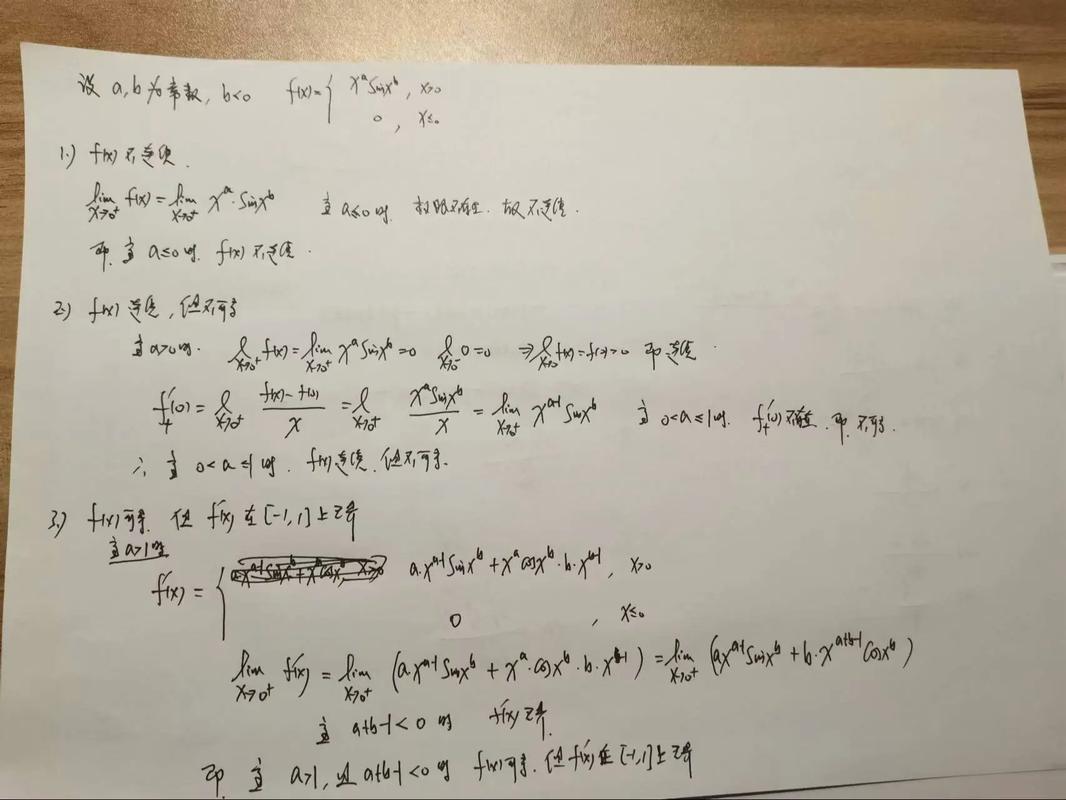 设 a,b 为常数, b<0 f(x)={ x^a sin x^b , x>0
0 , x≤0
1.) f(x) 不连续.
lim_{x→0⁺} f(x) = lim_{x→0⁺} x^a·sin x^b 当 a≤0 时. 极限不存在. 故不连续.
即. 当 a≤0 时. f(x) 不连续.
2.) f(x) 连续, 但不可导
当 a>0 时. l_{x→0⁺} f(x) = lim_{x→0⁺} x^a sin x^b = 0 l_{x→0⁻} 0=0 ⇒ l_{x→0} f(x) = f(0)=0 即连续.
f'₊(0) = l_{x→0⁺} (f(x)-f(0))/x = l_{x→0⁺} (x^a sin x^b)/x = lim_{x→0⁺} x^{a-1} sin x^b 当 0<a≤1 时. f'₊(0) 不存在. 即. 不可导.
∴ 当 0<a≤1 时. f(x) 连续. 但不可导.
3.) f(x) 可导. 但 f'(x) 在 [-1,1] 上无界
当 a>1 时
f'(x) = { a·x^{a-1} sin x^b + x^a cos x^b · b · x^{b-1} , x>0
0 , x≤0
lim_{x→0⁺} f'(x) = lim_{x→0⁺} (a x^{a-1} sin x^b + x^a·cos x^b · b · x^{b-1}) = lim_{x→0⁺} (a x^{a-1} sin x^b + b·x^{a+b-1} cos x^b)
当 a+b-1<0 时 f'(x) 无界.
即. 当 a>1, 且 a+b-1<0 时 f(x) 可导. 但 f'(x) 在 [-1,1] 上无界